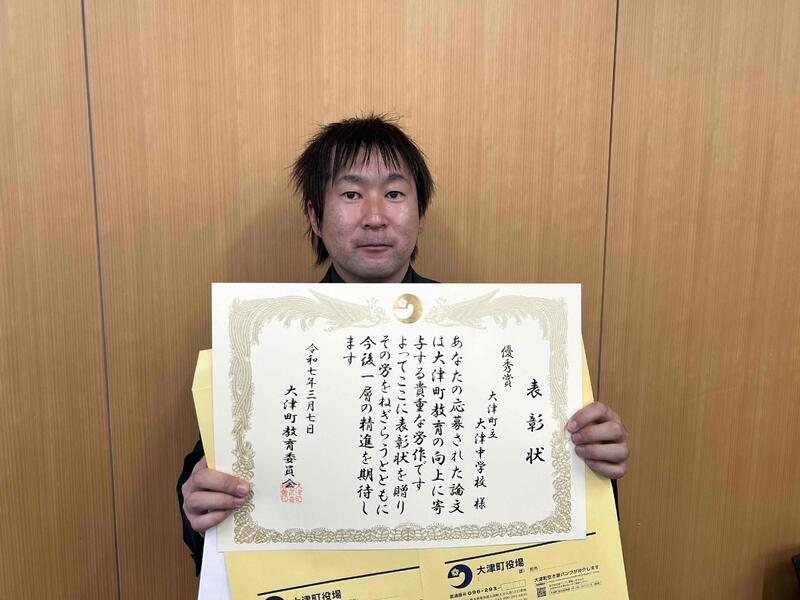 表彰状
優秀賞
大津町立
大津中学校 様
あなたの応募された論文
は大津町教育の向上に寄
与する貴重な労作です
よってここに表彰状を贈り
その労をねぎらうとともに
今後一層の精進を期待し
ます
令和七年三月七日
大津町教育委員会
大津町役場
大津町役場
課)
担当
096-293-
大津町空き家バンクが仲介します